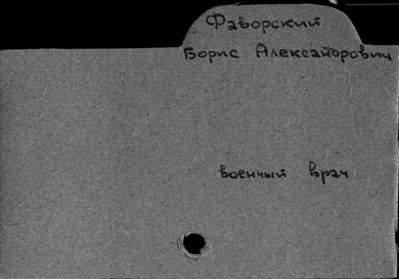 Фаворский
Борис Александрович
военный врач